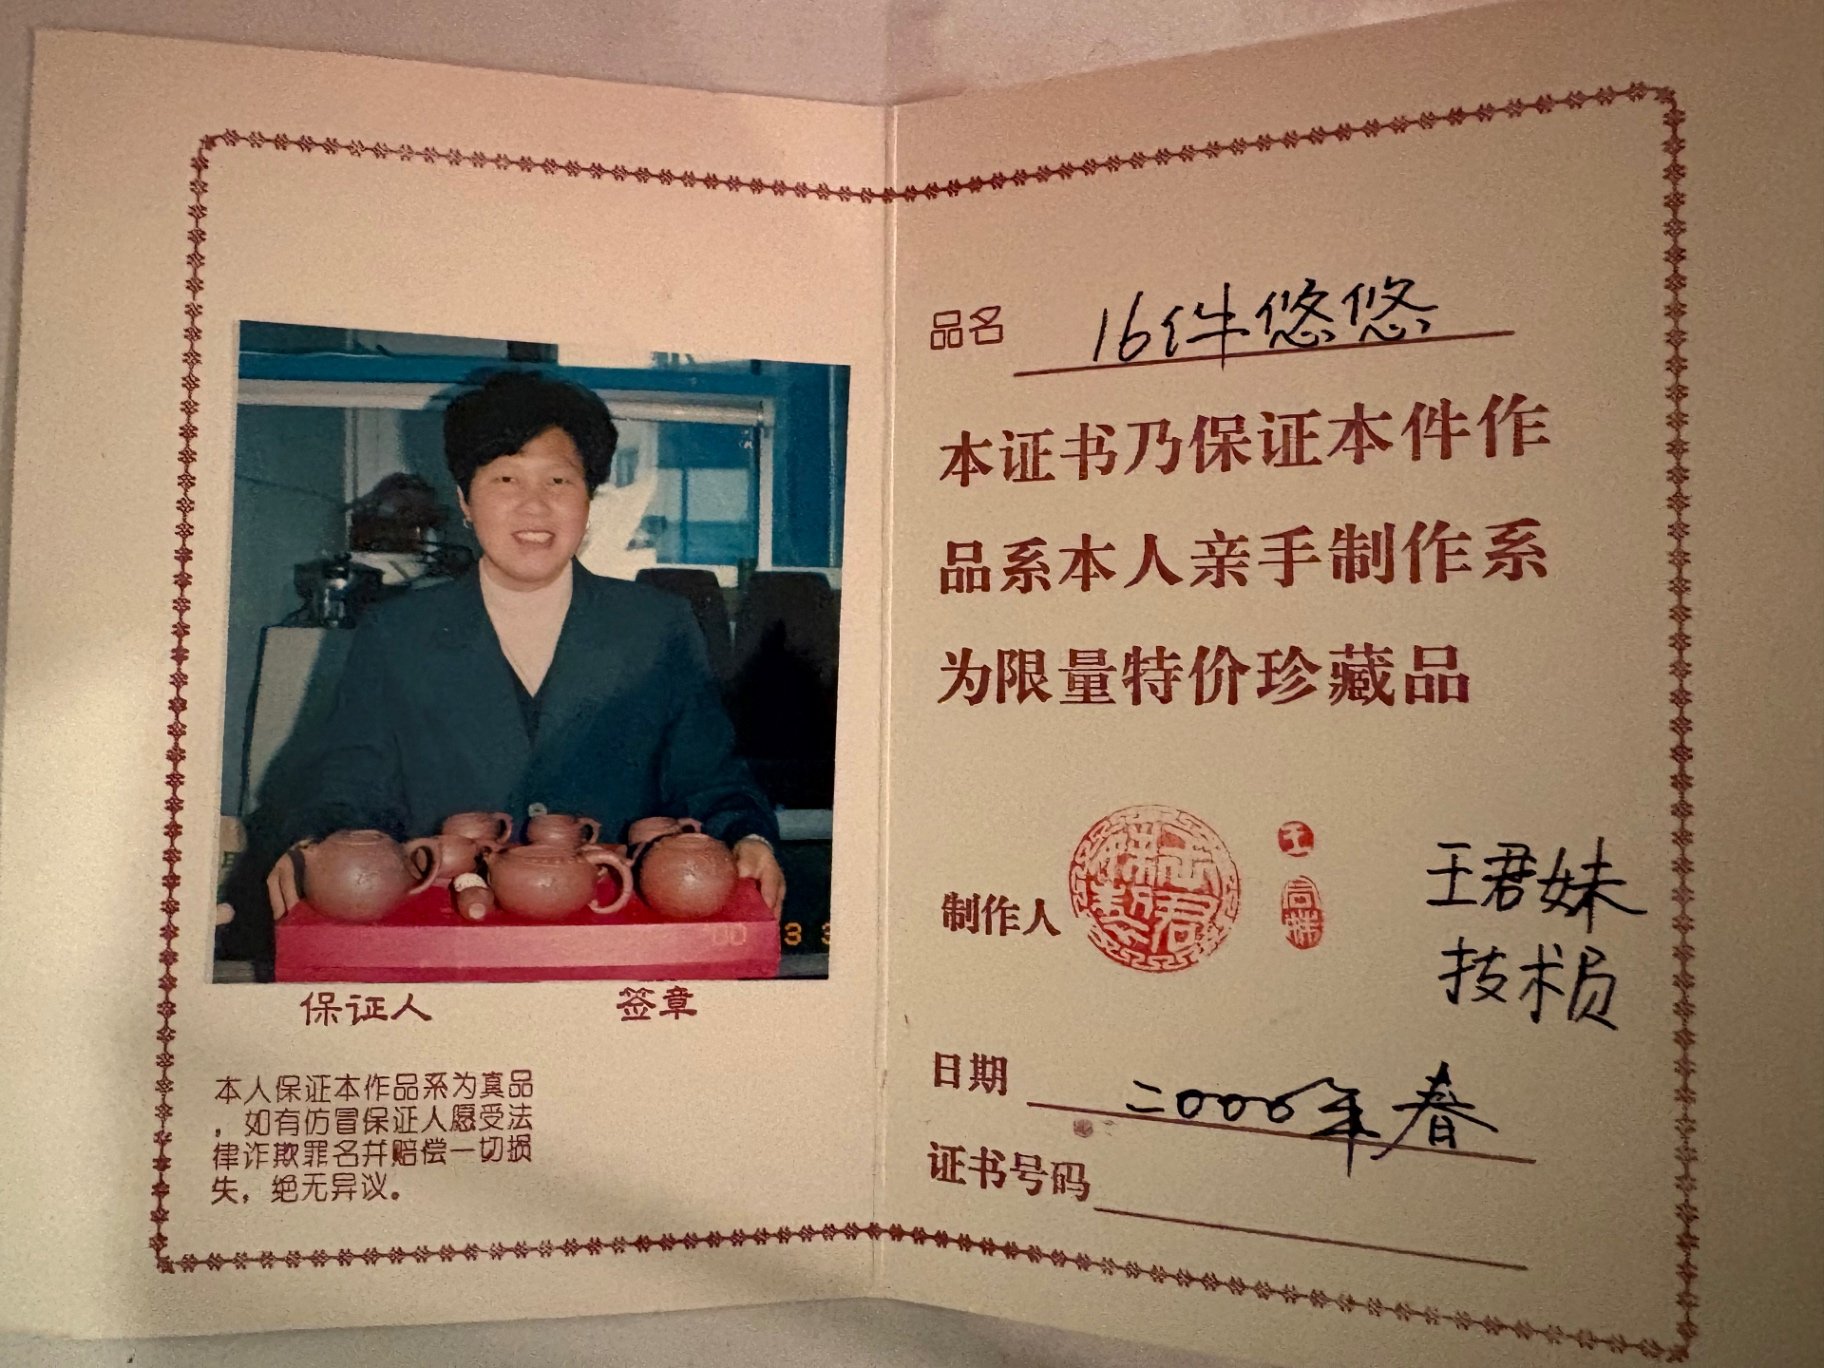 '00 3 3
保证人 签章
本人保证本作品系为真品
，如有仿冒保证人愿受法
律诈欺罪名并赔偿一切损
失，绝无异议。
品名 16件悠悠
本证书乃保证本件作
品系本人亲手制作系
为限量特价珍藏品
制作人 王 王君妹
技术员
日期 二000年春
证书号码